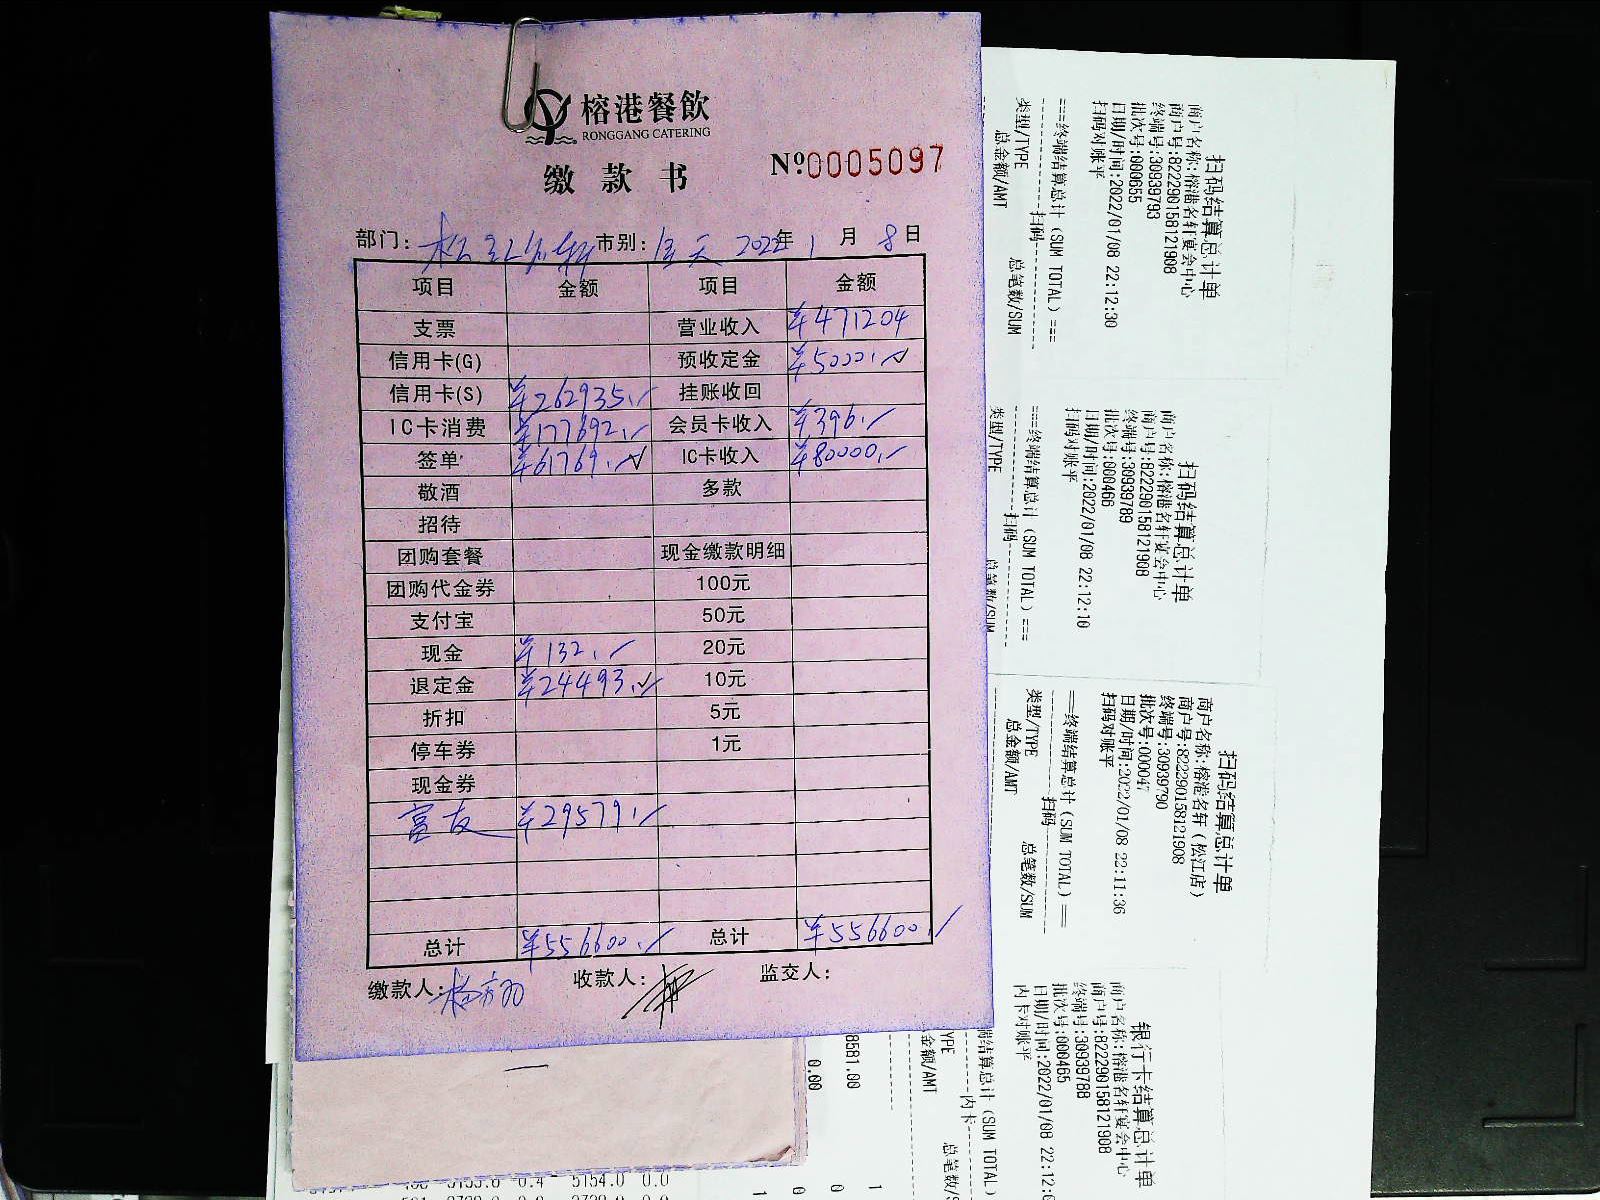 榕港餐飲
RONGGANG CATERING
缴款书
Nº:0005097
部门: 松江名轩 市别: 全天 2022年 1 月 8 日
项目 金额 项目 金额
支票 营业收入 ¥471204
信用卡(G) 预收定金 ¥5000.
信用卡(S) ¥262935. 挂账收回
IC卡消费 ¥177692. 会员卡收入 ¥396.
签单 ¥61769. IC卡收入 ¥80000.
敬酒 多款
招待
团购套餐 现金缴款明细
团购代金券 100元
支付宝 50元
现金 ¥132. 20元
退定金 ¥24493. 10元
折扣 5元
停车券 1元
现金券
富友 ¥29579.
总计 ¥556600. 总计 ¥556600.
缴款人: 收款人: 监交人:
扫码结算总计单
商户名称:榕港名轩宴会中心
商户号:822290158121908
终端号:30939793
批次号:000655
日期/时间:2022/01/08 22:12:30
扫码对账平
===终端结算总计(SUM TOTAL)===
扫码
类型/TYPE 总笔数/SUM
总金额/AMT
扫码结算总计单
商户名称:榕港名轩宴会中心
商户号:822290158121908
终端号:30939789
批次号:000466
日期/时间:2022/01/08 22:12:10
扫码对账平
===终端结算总计(SUM TOTAL)===
扫码
类型/TYPE 总笔数/SUM
扫码结算总计单
商户名称:榕港名轩(松江店)
商户号:822290158121908
终端号:30939790
批次号:000047
日期/时间:2022/01/08 22:11:36
扫码对账平
===终端结算总计(SUM TOTAL)==
扫码
类型/TYPE 总笔数/SUM
总金额/AMT
银行卡结算总计单
商户名称:榕港名轩宴会中心
商户号:822290158121908
终端号:30939788
批次号:000465
日期/时间:2022/01/08 22:12:0
内卡对账平
端结算总计(SUM TOTAL)
内卡
YPE 总笔数/S
金额/AMT
8581.00
0.00
5154.0 0.0